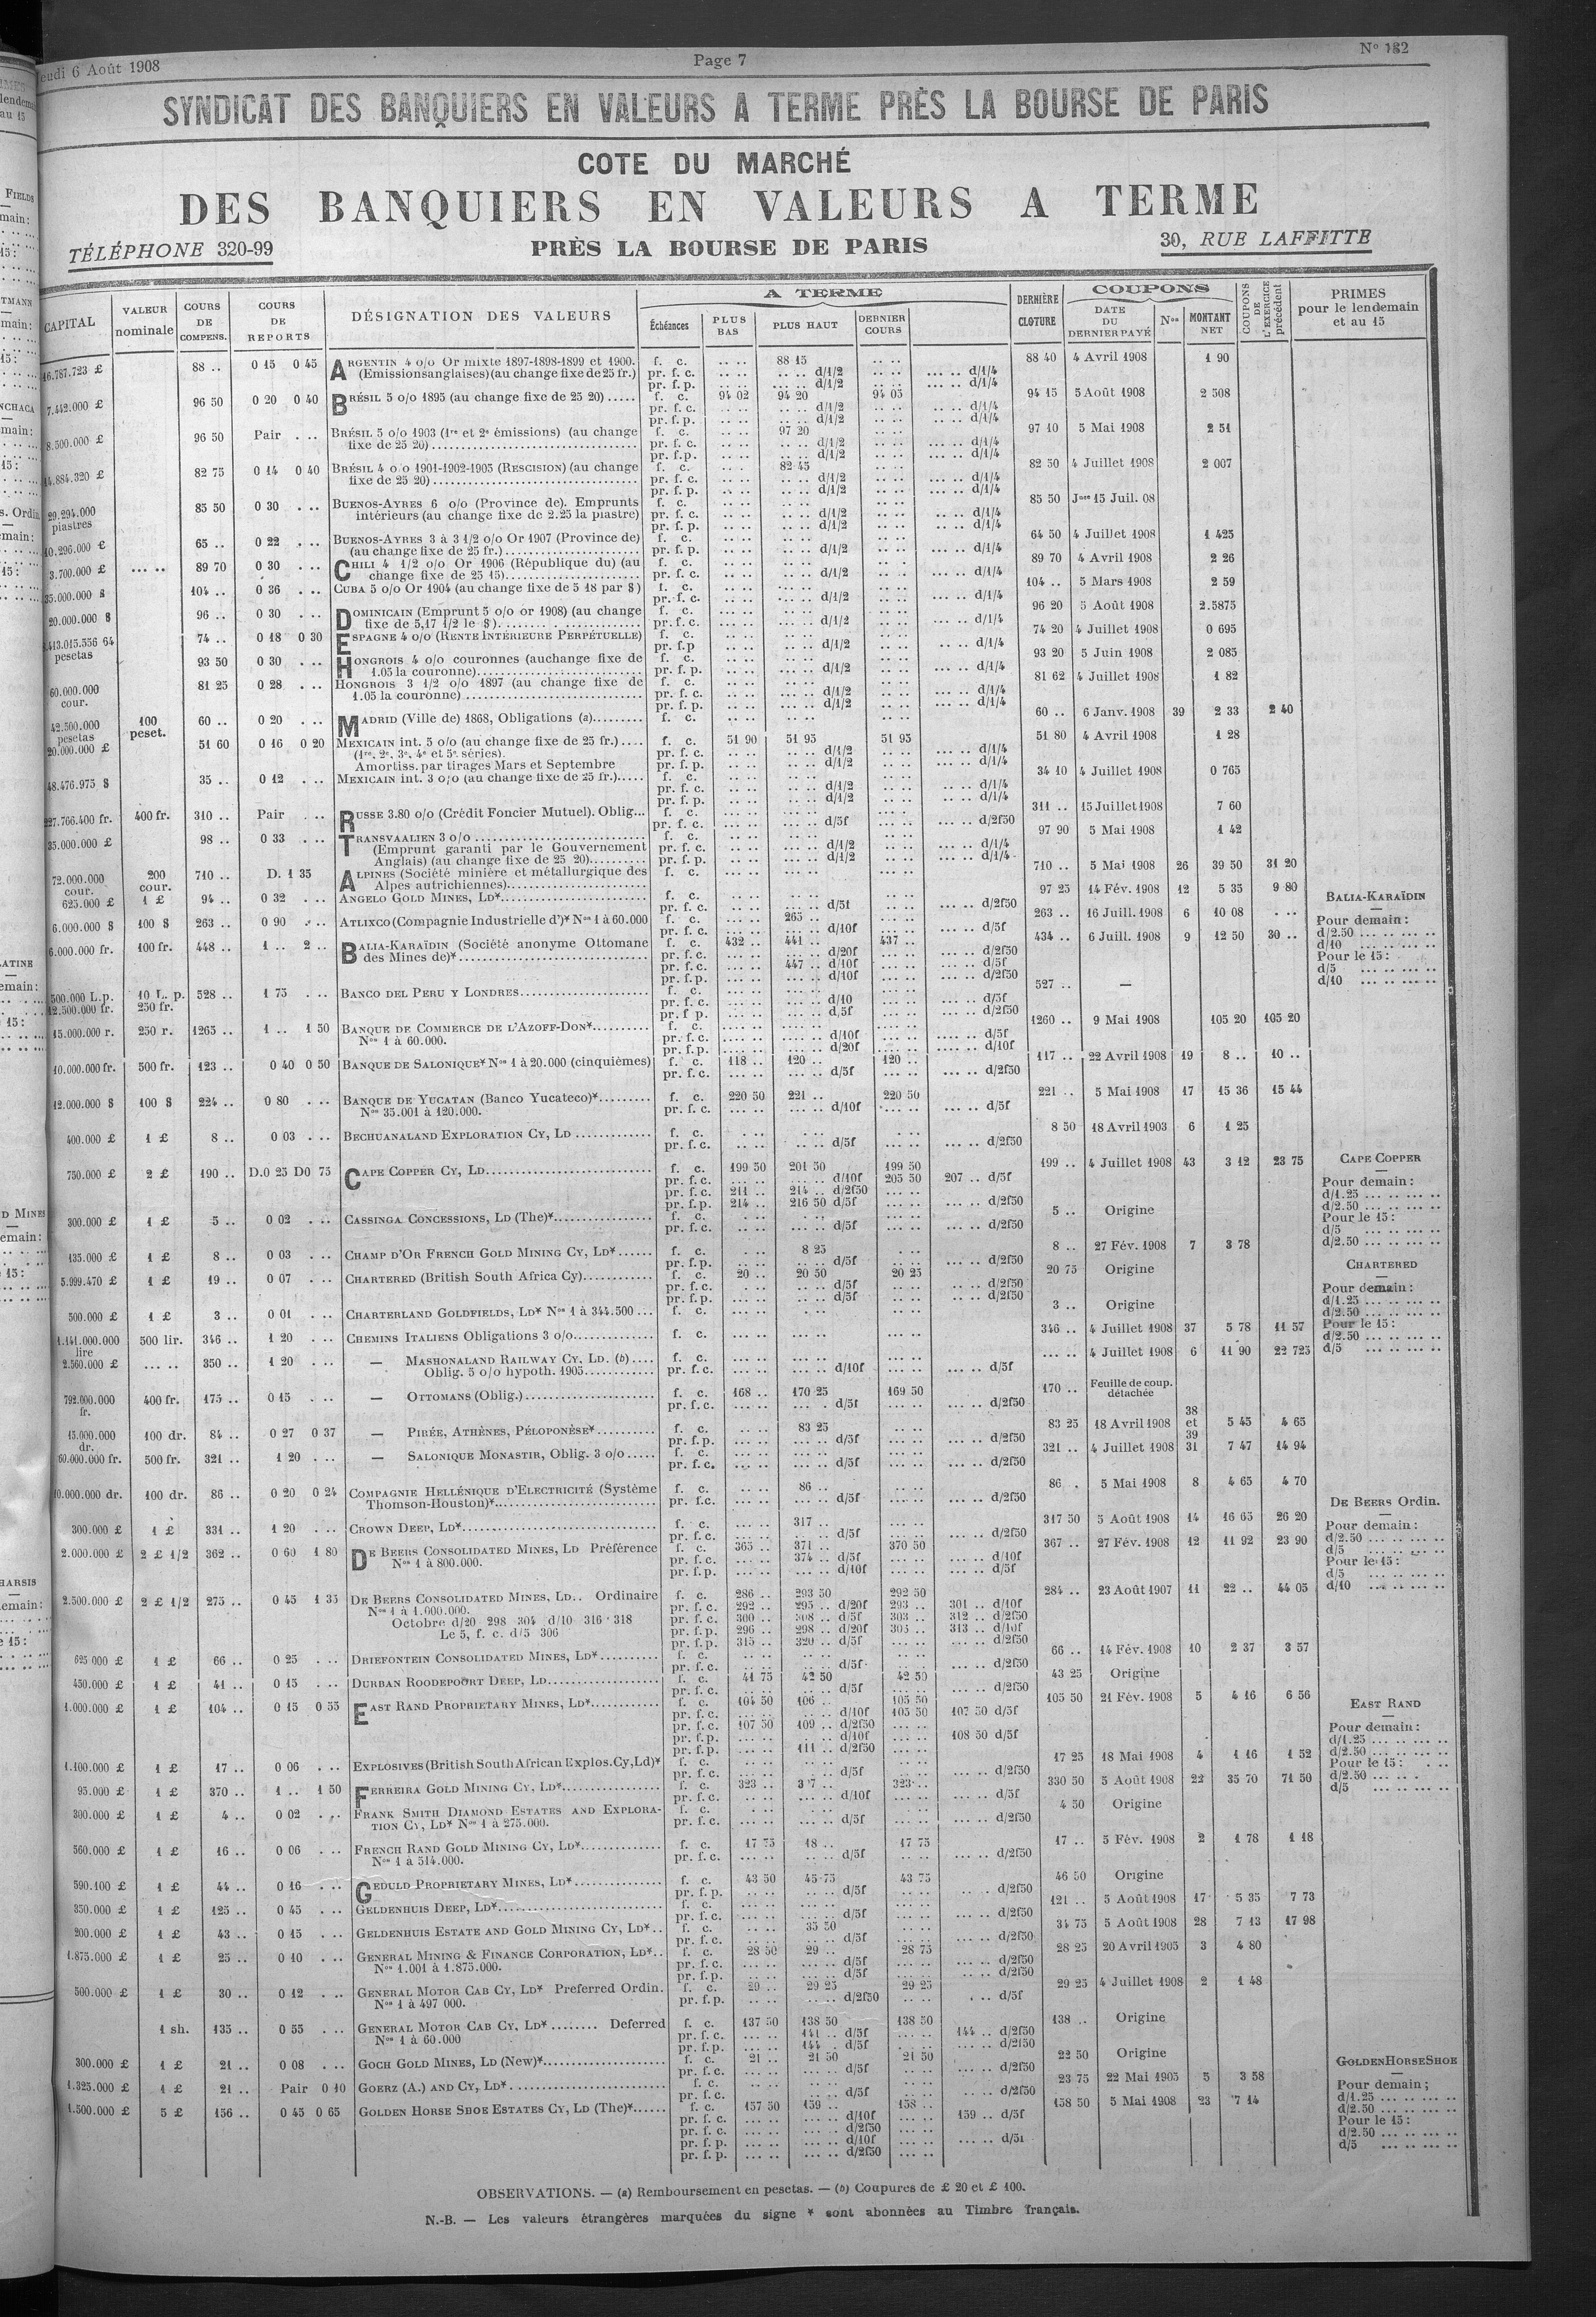 eudi 6 Août 1908
Page 7
SYNDICAT DES BANQUIERS EN VALEURS A TERME PRÈS LA BOURSE DE PARIS
COTE DU MARCHÉ
DES BANQUIERS EN VALEURS A TERME
TÉLÉPHONE 320-99
PRÈS LA BOURSE DE PARIS
30, RUE LAFFITTE
CAPITAL VALEUR nominale COURS DE COMPENS. COURS DE REPORTS DÉSIGNATION DES VALEURS A TERME Échéances PLUS BAS PLUS HAUT DERNIER COURS DERNIÈRE CLOTURE COUPONS DATE DU DERNIER PAYÉ Nos MONTANT NET COUPONS DE L'EXERCICE précédent PRIMES pour le lendemain et au 15
16.787.723 £ 88 .. 0 15 0 45 ARGENTIN 4 o/o Or mixte 1897-1898-1899 et 1900. f. c. .. .. 88 15 .. .. 88 40 4 Avril 1908 1 90
(Emissions anglaises) (au change fixe de 25 fr.) pr. f. c. .. .. .. .. d/1/2 .. .. ... .. d/1/4
pr. f. p. .. .. ... .. d/1/2 .. .. ... .. d/1/4
7.442.000 £ 96 50 0 20 0 40 BRÉSIL 5 o/o 1895 (au change fixe de 25 20) ..... f. c. 94 02 94 20 94 05 94 15 5 Août 1908 2 508
pr. f. c. .. .. .. .. d/1/2 .. .. .. .. d/1/4
pr. f. p. .. .. .. .. d/1/2 .. .. .. .. d/1/4
8.500.000 £ 96 50 Pair . .. BRÉSIL 5 o/o 1903 (1re et 2e émissions) (au change fixe de 25 20) f. c. .. .. 97 20 97 10 5 Mai 1908 2 51
pr. f. c. .. .. .. .. d/1/2 .. .. ... .. d/1/4
pr. f. p. .. .. .. .. d/1/2 .. .. ... .. d/1/4
14.884.320 £ 82 75 0 14 0 40 BRÉSIL 4 o/o 1901-1902-1905 (RESCISION) (au change fixe de 25 20) f. c. .. .. 82 45 82 50 4 Juillet 1908 2 007
pr. f. c. .. .. .. .. d/1/2 .. .. ... .. d/1/4
pr. f. p. .. .. .. .. d/1/2 .. .. ... .. d/1/4
piastres 85 50 0 30 . .. BUENOS-AYRES 6 o/o (Province de). Emprunts intérieurs (au change fixe de 2.25 la piastre) f. c. 85 50 Jce 15 Juil. 08
pr. f. c. .. .. .. .. d/1/2 .. .. ... .. d/1/4
pr. f. p. .. .. .. .. d/1/2 .. .. ... .. d/1/4
10.296.000 £ 65 .. 0 22 . .. BUENOS-AYRES 3 à 3 1/2 o/o Or 1907 (Province de) (au change fixe de 25 fr.) f. c. 64 50 4 Juillet 1908 1 425
pr. f. p. .. .. .. .. d/1/2 .. .. ... .. d/1/4
3.700.000 £ ... .. 89 70 0 30 . .. CHILI 4 1/2 o/o Or 1906 (République du) (au change fixe de 25 15) f. c. 89 70 4 Avril 1908 2 26
pr. f. c. .. .. .. .. d/1/2 .. .. ... .. d/1/4
35.000.000 $ 104 .. 0 36 . .. CUBA 5 o/o Or 1904 (au change fixe de 5 18 par $) f. c. 104 .. 5 Mars 1908 2 59
pr. f. c. .. .. .. .. d/1/2 .. .. ... .. d/1/4
20.000.000 $ 96 .. 0 30 . .. DOMINICAIN (Emprunt 5 o/o or 1908) (au change fixe de 5,17 1/2 le $) f. c. 96 20 5 Août 1908 2.5875
pr. f. c. .. .. .. .. d/1/2 .. .. ... .. d/1/4
.413.015.556 64 pesetas 74 .. 0 18 0 30 ESPAGNE 4 o/o (RENTE INTÉRIEURE PERPÉTUELLE) f. c. 74 20 4 Juillet 1908 0 695
pr. f.p .. .. .. .. d/1/2 .. .. ... .. d/1/4
93 50 0 30 . .. HONGROIS 4 o/o couronnes (au change fixe de 1.05 la couronne) f. c. 93 20 5 Juin 1908 2 085
pr. f. p. .. .. .. .. d/1/2 .. .. ... .. d/1/4
60.000.000 cour. 81 25 0 28 . .. HONGROIS 3 1/2 o/o 1897 (au change fixe de 1.05 la couronne) f. c. 81 62 4 Juillet 1908 1 82
pr. f. c. .. .. .. .. d/1/2 .. .. ... .. d/1/4
pr. f. p. .. .. .. .. d/1/2 .. .. ... .. d/1/4
42.500.000 pesetas 100 peset. 60 .. 0 20 . .. MADRID (Ville de) 1868, Obligations (a) f. c. 60 .. 6 Janv. 1908 39 2 33 2 40
20.000.000 £ 51 60 0 16 0 20 MEXICAIN int. 5 o/o (au change fixe de 25 fr.) f. c. 51 90 51 95 51 95 51 80 4 Avril 1908 1 28
(1re, 2e, 3e, 4e et 5e séries). pr. f. c. .. .. .. .. d/1/2 .. .. ... .. d/1/4
Amortiss. par tirages Mars et Septembre pr. f. p. .. .. .. .. d/1/2 .. .. ... .. d/1/4
48.476.975 $ 35 .. 0 12 . .. MEXICAIN int. 3 o/o (au change fixe de 25 fr.) f. c. 34 10 4 Juillet 1908 0 765
pr. f. c. .. .. .. .. d/1/2 .. .. .. .. d/1/4
pr. f. p. .. .. .. .. d/1/2 .. .. .. .. d/1/4
227.766.400 fr. 400 fr. 310 .. Pair . .. RUSSE 3.80 o/o (Crédit Foncier Mutuel). Oblig... f. c. 311 .. 15 Juillet 1908 7 60
pr. f. c. ... .. ... .. d/5f ... .. ... .. d/2f50
35.000.000 £ 98 .. 0 33 . .. TRANSVAALIEN 3 o/o f. c. 97 90 5 Mai 1908 1 42
(Emprunt garanti par le Gouvernement pr. f. c. .. .. .. .. d/1/2 .. .. ... .. d/1/4
Anglais) (au change fixe de 25 20) pr. f. p. .. .. .. .. d/1/2 .. .. ... .. d/1/4
72.000.000 cour. 200 cour. 710 .. D. 1 35 ALPINES (Société minière et métallurgique des Alpes autrichiennes) f. c. 710 .. 5 Mai 1908 26 39 50 31 20
625.000 £ 1 £ 94 .. 0 32 . .. ANGELO GOLD MINES, LD* f. c. 97 25 14 Fév. 1908 12 5 35 9 80
pr. f. c. ... .. ... .. d/5f ... .. ... .. d/2f50
6.000.000 $ 100 $ 263 .. 0 90 . .. ATLIXCO (Compagnie Industrielle d')* Nos 1 à 60.000 f. c. ... .. 265 .. 263 .. 16 Juill. 1908 6 10 08
pr. f. c. ... .. ... .. d/10f ... .. ... .. d/5f
6.000.000 fr. 100 fr. 448 .. 1 .. 2 .. BALIA-KARAÏDIN (Société anonyme Ottomane des Mines de)* f. c. 432 .. 441 .. 437 .. 434 .. 6 Juill. 1908 9 12 50 30 ..
pr. f. c. ... .. ... .. d/20f ... .. ... .. d/2f50
pr. f. c. ... .. 447 .. d/10f ... .. ... .. d/5f
pr. f. p. ... .. ... .. d/10f ... .. ... .. d/2f50
BALIA-KARAÏDIN
Pour demain :
d/2.50 ... .. ... ..
d/10 ... .. ... ..
Pour le 15 :
d/5 ... .. ... ..
d/10 ... .. ... ..
500.000 L.p. 12.500.000 fr. 10 L. p. 250 fr. 528 .. 1 75 . .. BANCO DEL PERU Y LONDRES f. c. 527 .. —
pr. f. c. ... .. ... .. d/10 ... .. ... .. d/5f
pr. f p. ... .. ... .. d/5f ... .. ... .. d/2f50
15.000.000 r. 250 r. 1265 .. 1 .. 1 50 BANQUE DE COMMERCE DE L'AZOFF-DON* f. c. 1260 .. 9 Mai 1908 105 20 105 20
Nos 1 à 60.000. pr. f. c. .... .. .... .. d/10f .... .. .... .. d/5f
pr. f. p. .... .. .... .. d/20f .... .. .... .. d/10f
10.000.000 fr. 500 fr. 123 .. 0 40 0 50 BANQUE DE SALONIQUE* Nos 1 à 20.000 (cinquièmes) f. c. 118 .. 120 .. 120 .. 117 .. 22 Avril 1908 19 8 .. 10 ..
pr. f. c. ... .. ... .. d/5f ... .. ... .. d/2f50
12.000.000 $ 100 $ 224 .. 0 80 . .. BANQUE DE YUCATAN (Banco Yucateco)* f. c. 220 50 221 .. 220 50 221 .. 5 Mai 1908 17 15 36 15 44
Nos 35.001 à 120.000. pr. f. c. ... .. ... .. d/10f ... .. ... .. d/5f
400.000 £ 1 £ 8 .. 0 03 . .. BECHUANALAND EXPLORATION CY, LD f. c. 8 50 18 Avril 1903 6 1 25
pr. f. c. .. .. .. .. d/5f .. .. ... .. d/2f50
750.000 £ 2 £ 190 .. D.0 25 D0 75 CAPE COPPER CY, LD f. c. 199 50 201 50 199 50 199 .. 4 Juillet 1908 43 3 12 23 75
pr. f. c. ... .. ... .. d/10f 205 50 207 .. d/5f
pr. f. c. 211 .. 214 .. d/2f50 ... ..
pr. f. p. 214 .. 216 50 d/5f ... .. ... .. d/2f50
CAPE COPPER
Pour demain :
d/1.25 ... .. ... ..
d/2.50 ... .. ... ..
Pour le 15 :
d/5 ... .. ... ..
d/2.50 ... .. ... ..
300.000 £ 1 £ 5 .. 0 02 . .. CASSINGA CONCESSIONS, LD (The)* f. c. 5 .. Origine
pr. f. c. .. .. .. .. d/5f .. .. ... .. d/2f50
135.000 £ 1 £ 8 .. 0 03 . .. CHAMP D'OR FRENCH GOLD MINING CY, LD* f. c. . .. 8 25 . .. 8 .. 27 Fév. 1908 7 3 78
pr. f. p. .. .. .. .. d/5f .. .. ... .. d/2f50
5.999.470 £ 1 £ 19 .. 0 07 . .. CHARTERED (British South Africa Cy) f. c. 20 .. 20 50 20 25 20 75 Origine
pr. f. c. .. .. .. .. d/5f .. .. .. .. d/2f50
pr. f. p. .. .. .. .. d/5f .. .. .. .. d/2f50
CHARTERED
Pour demain :
d/1.25 ... .. ... ..
d/2.50 ... .. ... ..
Pour le 15 :
d/2.50 ... .. ... ..
d/5 ... .. ... ..
500.000 £ 1 £ 3 .. 0 01 . .. CHARTERLAND GOLDFIELDS, LD* Nos 1 à 344.500 ... f. c. 3 .. Origine
1.141.000.000 lire 500 lir. 346 .. 1 20 . .. CHEMINS ITALIENS Obligations 3 o/o f. c. 346 .. 4 Juillet 1908 37 5 78 11 57
2.560.000 £ ... .. 350 .. 1 20 . .. — MASHONALAND RAILWAY CY, LD. (b) .... f. c. ... .. 4 Juillet 1908 6 11 90 22 725
Oblig. 5 o/o hypoth. 1905 pr. f. c. ... .. ... .. d/10f ... .. ... .. d/5f
792.000.000 fr. 400 fr. 175 .. 0 15 . .. — OTTOMANS (Oblig.) f. c. 168 .. 170 25 169 50 170 .. Feuille de coup. détachée
pr. f. c. ... .. ... . d/5f ... .. ... .. d/2f50
15.000.000 dr. 100 dr. 84 .. 0 27 0 37 — PIRÉE, ATHÈNES, PÉLOPONÈSE* f. c. ... .. 83 25 83 25 18 Avril 1908 38 et 39 5 45 4 65
pr. f. p. ... .. ... .. d/5f ... .. ... .. d/2f50
60.000.000 fr. 500 fr. 321 .. 1 20 . .. — SALONIQUE MONASTIR, Oblig. 3 o/o f. c. 321 .. 4 Juillet 1908 31 7 47 14 94
pr. f. c. ... .. ... .. d/5f ... .. ... .. d/2f50
10.000.000 dr. 100 dr. 86 .. 0 20 0 24 COMPAGNIE HELLÉNIQUE D'ELECTRICITÉ (Système Thomson-Houston)* f. c. ... .. 86 .. 86 . 5 Mai 1908 8 4 65 4 70
pr. f.c. ... .. ... .. d/5f ... .. ... .. d/2f50
300.000 £ 1 £ 331 .. 1 20 . .. CROWN DEEP, LD* f. c. ... .. 317 .. 317 50 5 Août 1908 14 16 65 26 20
pr. f. c. ... .. ... .. d/5f ... .. ... .. d/2f50
2.000.000 £ 2 £ 1/2 362 .. 0 60 1 80 DE BEERS CONSOLIDATED MINES, LD Préférence f. c. 365 .. 371 .. 370 50 367 .. 27 Fév. 1908 12 11 92 23 90
Nos 1 à 800.000. pr. f. c. ... .. 374 .. d/5f ... .. ... .. d/10f
pr. f. p. ... .. ... .. d/10f ... .. ... .. d/5f
DE BEERS Ordin.
Pour demain :
d/2.50 ... .. ... ..
d/5 ... .. ... ..
Pour le 15 :
d/5 ... .. ... ..
d/10 ... .. ... ..
2.500.000 £ 2 £ 1/2 275 .. 0 45 1 35 DE BEERS CONSOLIDATED MINES, LD.. Ordinaire f. c. 286 .. 293 50 292 50 284 .. 23 Août 1907 11 22 .. 44 05
Nos 1 à 1.000.000. pr. f. c. 292 .. 295 .. d/20f 293 .. 301 .. d/10f
Octobre d/20 298 304 d/10 316 318 pr. f. c. 300 .. 308 .. d/5f 303 .. 312 .. d/2f50
Le 5, f. c. d/5 306 pr. f. p. 296 .. 298 .. d/20f 305 .. 313 .. d/10f
pr. f. p. 315 .. 320 .. d/5f ... .. ... .. d/2f50
625 000 £ 1 £ 66 .. 0 25 . .. DRIEFONTEIN CONSOLIDATED MINES, LD* f. c. 66 .. 14 Fév. 1908 10 2 37 3 57
pr. f. c. .. .. .. .. d/5f .. .. ... .. d/2f50
450.000 £ 1 £ 41 .. 0 15 . .. DURBAN ROODEPOORT DEEP, LD f. c. 41 75 42 50 42 50 43 25 Origine
pr. f. c. .. .. .. .. d/5f .. .. ... .. d/2f50
1.000.000 £ 1 £ 104 .. 0 15 0 55 EAST RAND PROPRIETARY MINES, LD* f. c. 104 50 106 .. 105 50 105 50 21 Fév. 1908 5 4 16 6 56
pr. f. c. ... .. ... .. d/10f 105 50 107 50 d/5f
pr. f. c. 107 50 109 .. d/2f50 ... ..
pr. f. p. ... .. ... .. d/10f ... .. 108 50 d/5f
pr. f. p. ... .. 111 .. d/2f50 ... ..
EAST RAND
Pour demain :
d/1.25 ... .. ... ..
d/2.50 ... .. ... ..
Pour le 15 :
d/2.50 ... ..
d/5 ... .. ... ..
1.100.000 £ 1 £ 17 .. 0 06 . .. EXPLOSIVES (British South African Explos. Cy, Ld)* f. c. 17 25 18 Mai 1908 4 1 16 1 52
pr. f. c. .. .. .. .. d/5f .. .. ... .. d/2f50
95.000 £ 1 £ 370 .. 1 .. 1 50 FERREIRA GOLD MINING CY, LD* f. c. 323 .. 323 .. 330 50 5 Août 1908 22 35 70 71 50
pr. f. c. ... .. ... .. d/10f ... .. ... .. d/5f
300.000 £ 1 £ 4 .. 0 02 . .. FRANK SMITH DIAMOND ESTATES AND EXPLORATION CY, LD* Nos 1 à 275.000. f. c. 4 50 Origine
pr. f. c. ... .. ... .. d/5f .. .. ... .. d/2f50
560.000 £ 1 £ 16 .. 0 06 . .. FRENCH RAND GOLD MINING CY, LD* f. c. 17 75 18 .. 17 75 17 .. 5 Fév. 1908 2 1 78 1 18
Nos 1 à 514.000. pr. f. c. ... .. ... .. d/5f .. .. ... .. d/2f50
590.100 £ 1 £ 44 .. 0 16 . .. GEDULD PROPRIETARY MINES, LD* f. c. 43 50 45 75 43 75 46 50 Origine
pr. f. p. .. .. .. .. d/5f .. .. .. . d/2f50
350.000 £ 1 £ 125 .. 0 45 . .. GELDENHUIS DEEP, LD* f. c. 121 .. 5 Août 1908 17 5 35 7 73
pr. f. c. ... .. ... .. d/5f ... .. ... .. d/2f50
200.000 £ 1 £ 43 .. 0 15 . .. GELDENHUIS ESTATE AND GOLD MINING CY, LD* f. c. .. .. 35 50 34 75 5 Août 1908 28 7 13 17 98
pr. f. c. .. .. .. .. d/5f .. .. ... .. d/2f50
1.875.000 £ 1 £ 25 .. 0 10 . .. GENERAL MINING & FINANCE CORPORATION, LD* f. c. 28 50 29 .. 28 75 28 25 20 Avril 1905 3 4 80
Nos 1.001 à 1.875.000. pr. f. c. ... .. ... .. d/5f ... .. ... .. d/2f50
pr. f. p. .. .. ... .. d/5f .. .. .. .. d/2f50
500.000 £ 1 £ 30 .. 0 12 . .. GENERAL MOTOR CAB CY, LD* Preferred Ordin. f. c. 29 .. 29 25 29 25 29 25 4 Juillet 1908 2 1 48
Nos 1 à 497 000. pr. f. p. .. .. .. .. d/2f50 .. .. . .. d/5f
1 sh. 135 .. 0 55 . .. GENERAL MOTOR CAB CY, LD* ........ Deferred f. c. 137 50 138 50 138 50 138 .. Origine
Nos 1 à 60.000 pr. f. c. ... .. 141 .. d/5f ... .. 144 .. d/2f50
pr. f. p. ... .. 144 . d/5f . .. ... .. d/2f50
300.000 £ 1 £ 21 .. 0 08 . .. GOCH GOLD MINES, LD (New)* f. c. 21 .. 21 50 21 50 22 50 Origine
pr. f. c. .. .. .. .. d/5f .. .. ... .. d/2f50
1.325.000 £ 1 £ 21 .. Pair 0 10 GOERZ (A.) AND CY, LD* f. c. 23 75 22 Mai 1905 5 3 58
pr. f. c. .. .. .. .. d/5f .. .. ... .. d/2f50
1.500.000 £ 5 £ 156 .. 0 45 0 65 GOLDEN HORSE SHOE ESTATES CY, LD (The)* f. c. 157 50 159 .. 158 .. 158 50 5 Mai 1908 23 7 14
pr. f. c. ... .. ... .. d/10f ... .. 159 .. d/5f
pr. f. c. ... .. ... .. d/2f50 ... ..
pr. f. p. ... .. ... .. d/10f ... .. ... .. d/5f
pr. f. p. ... .. ... .. d/2f50 ... ..
GOLDEN HORSE SHOE
Pour demain :
d/1.25 ... .. ... ..
d/2.50 ... .. ... ..
Pour le 15 :
d/2.50 ... .. ... ..
d/5 ... .. ... ..
OBSERVATIONS. — (a) Remboursement en pesetas. — (b) Coupures de £ 20 et £ 100.
N.-B. — Les valeurs étrangères marquées du signe * sont abonnées au Timbre français.